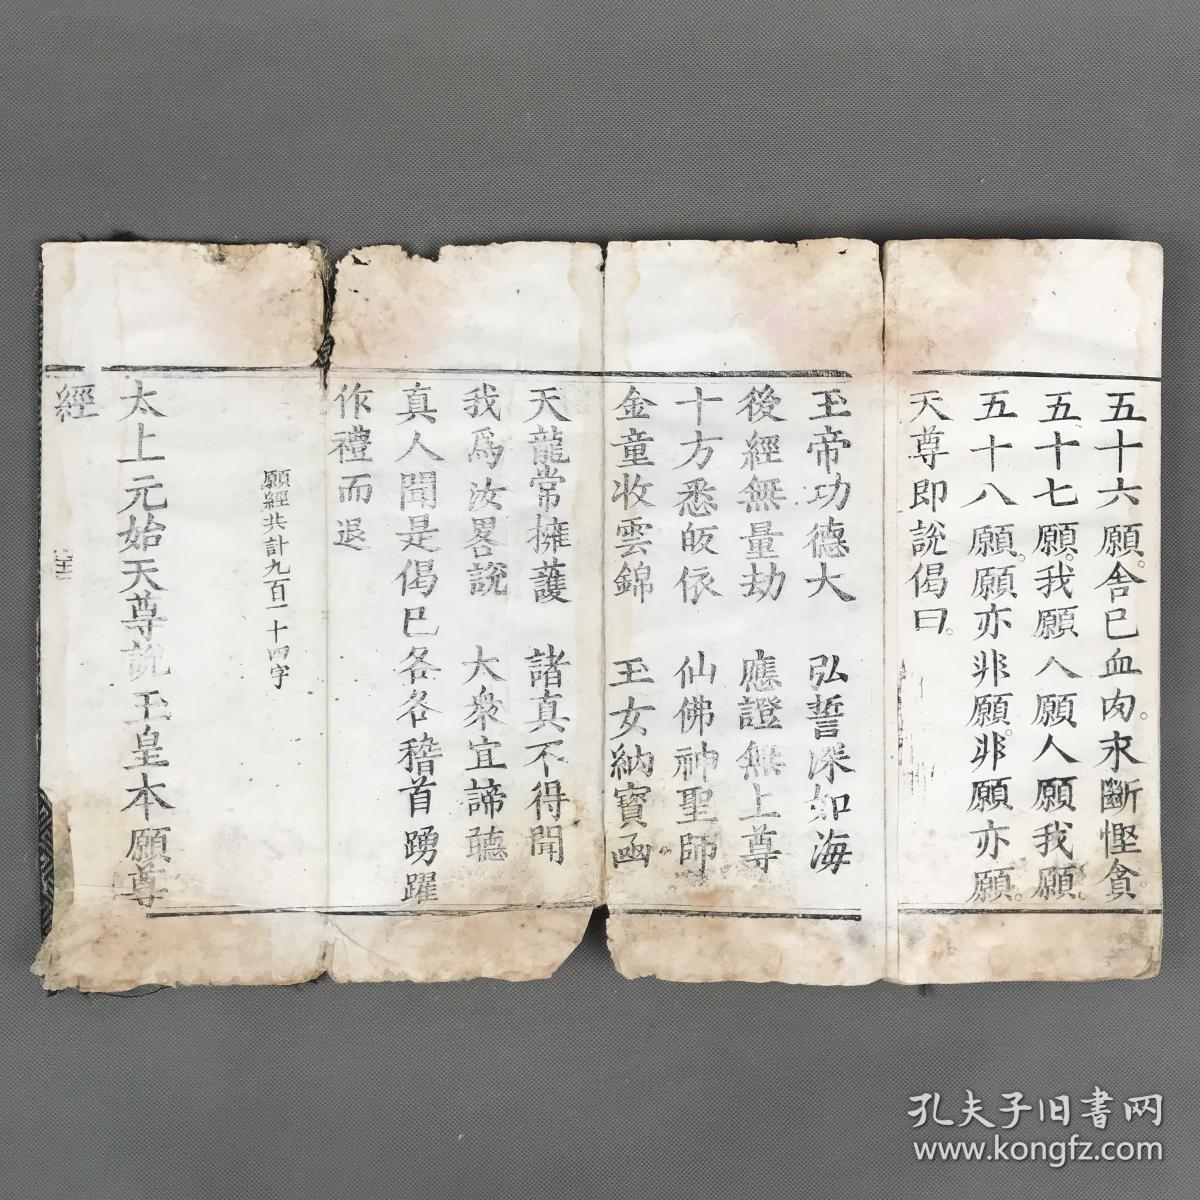 五十六願。舍巳血肉。求斷慳貪。
五十七願。我願人願。人願我願。
五十八願。願亦非願。非願亦願。
天尊即說偈曰。
玉帝功德大　弘誓深如海
後經無量劫　應證無上尊
十方悉皈依　仙佛神聖師
金童收雲錦　玉女納寶函
天龍常擁護　諸真不得聞
我爲汝畧說　大衆宜諦聽
真人聞是偈巳各各稽首踴躍
作禮而退
願經共計九百一十四字
太上元始天尊說玉皇本願尊
經
孔夫子旧書网
www.kongfz.com